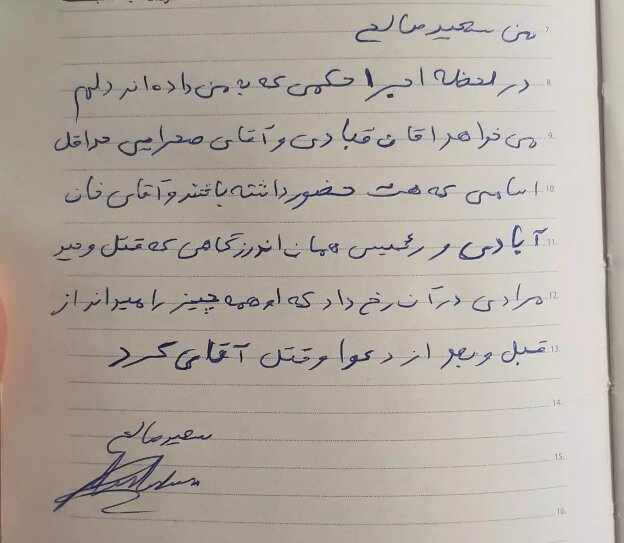 من سعید صالح
در لحظه اجرا حکمی که به من داده اند دلم
می خواهد اقای قبادی و آقای صحرایی حداقل
اسامی که هست حضور داشته باشند و آقای خان
آبادی و رئیس همان اندرزگاهی که قتل وحید
مرادی در آن رخ داد که او همه چیز را میداند از
قبل و بعد از دعوا و قتل آقای کرد
سعید صالح
7.
8.
9.
10.
11.
12.
13.
14.
15.
16.